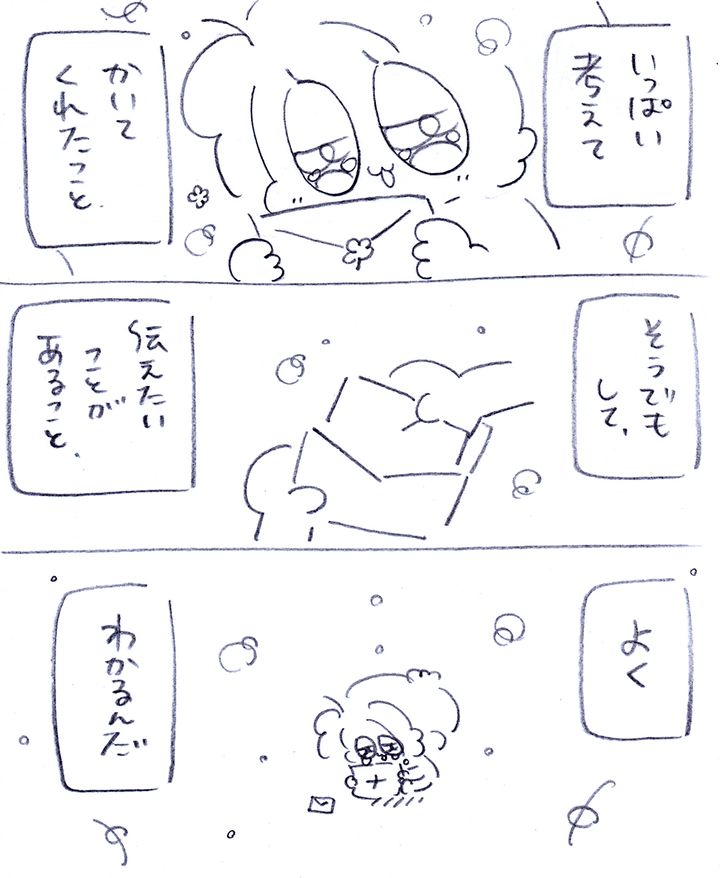 いっぱい
考えて
かいて
くれたこと.
そうでも
して、
伝えたい
ことが
あること.
よく
わかるんだ